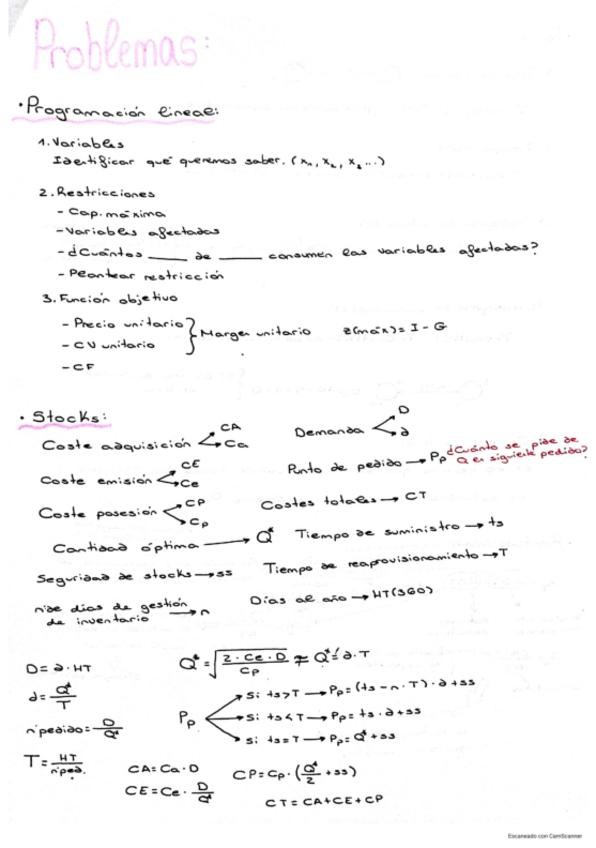 Problemas:
• Programación lineal:
1. Variables
Identificar qué queremos saber. (x₁, x₂, x₃ ...)
2. Restricciones
- Cap. máxima
- Variables afectadas
- ¿Cuántos ____ de ____ consumen las variables afectadas?
- Plantear restricción
3. Función objetivo
- Precio unitario
- CV unitario } Margen unitario z(máx) = I - G
- CF
• Stocks:
Coste adquisición < CA Ca
Demanda < D d
Coste emisión < CE Ce
Punto de pedido → Pp ¿Cuánto se pide de Q el siguiente pedido?
Coste posesión < CP Cp
Costes totales → CT
Cantidad óptima → Q*
Tiempo de suministro → ts
Seguridad de stocks → ss
Tiempo de reaprovisionamiento → T
nº de días de gestión de inventario → n
Días al año → HT (360)
D = d · HT
Q* = √(2 · Ce · D / Cp) ≠ Q*' d · T
d = Q* / T
Pp
Si ts > T → Pp = (ts - n · T) · d + ss
Si ts < T → Pp = ts · d + ss
Si ts = T → Pp = Q* + ss
nº pedido = D / Q*
T = HT / nº ped.
CA = Ca · D
CP = Cp · (Q* / 2 + ss)
CE = Ce · D / Q*
CT = CA + CE + CP
Escaneado con CamScanner